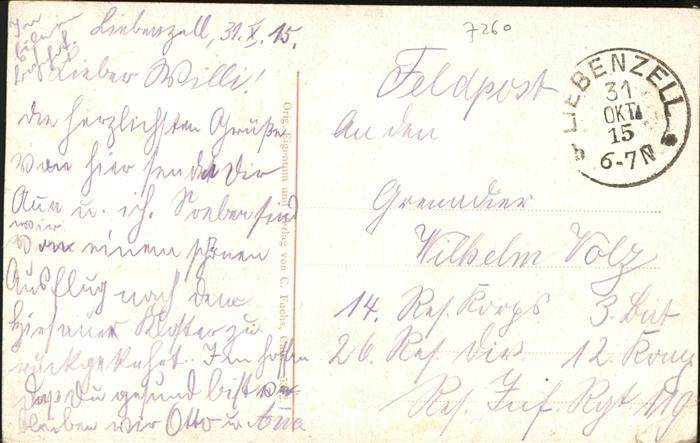 Liebenzell, 31. X. 15.
Lieber Willi!
Die herzlichsten Grüße
von hier sendet Dir
Anna u. ich. Soeben sind
wir
von einem schönen
Ausflug nach dem
Hirsauer Kloster zu
rückgekehrt. Im hoffen
daß Du gesund bist
bleiben wir Otto u. Anna
Orig. Eigentum und Verlag von C. Fuchs,
7260
Feldpost
LIEBENZELL
31
OKT
15
6-7N
An den
Grenadier
Wilhelm Volz
14. Res. Korps 3. Bat
26. Res. Div. 12. Komp
Res. Inf. Rgt 119